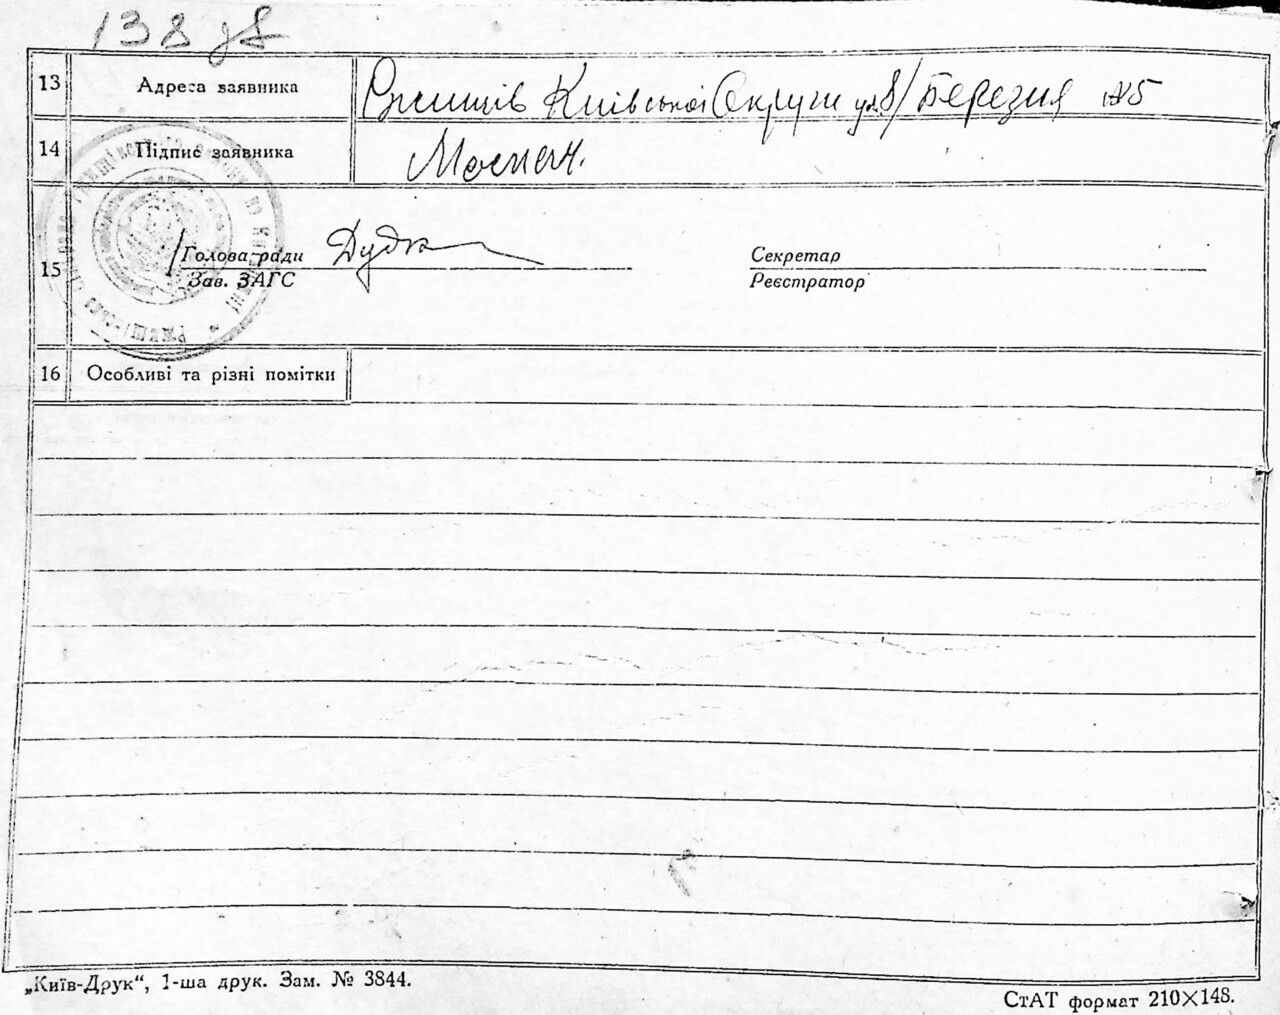 138
13 Адреса заявника Ржищів Київської Округи ул. 8/Березня №5
14 Підпис заявника Москал.
15 Голова ради Дудка Секретар
Зав. ЗАГС Реєстратор
16 Особливі та різні помітки
„Київ-Друк“, 1-ша друк. Зам. № 3844.
СтАТ формат 210×148.